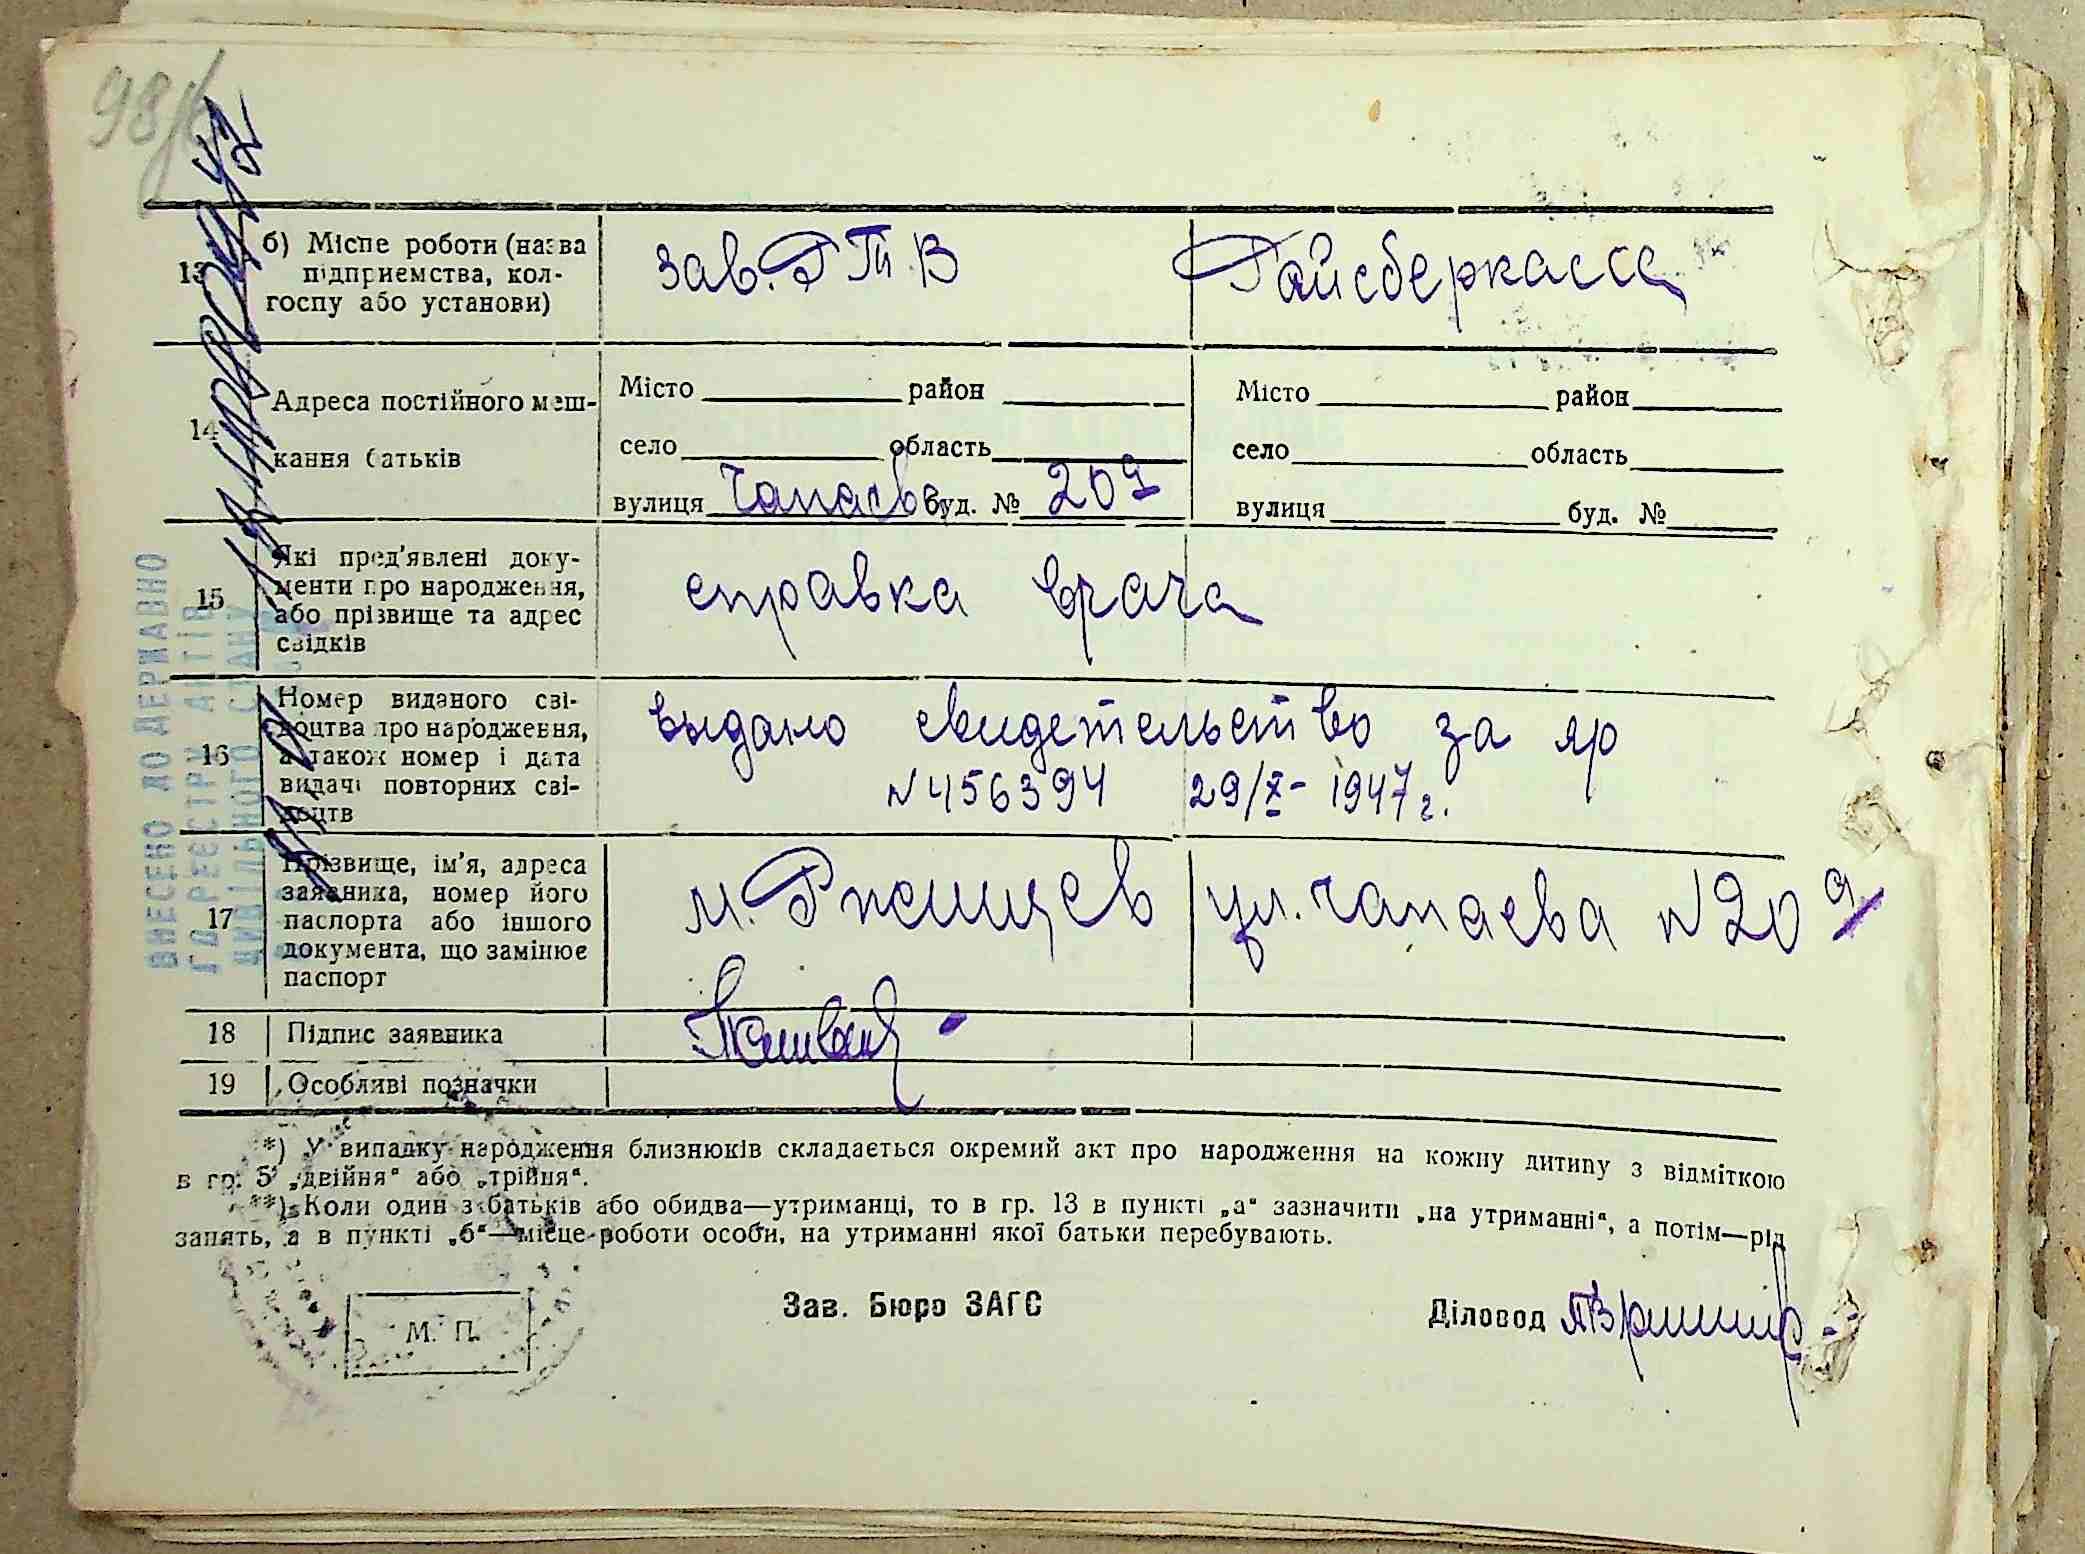 98
13 б) Місце роботи (назва підприємства, колгоспу або установи)
зав. РТВ Райсберкасса
14 Адреса постійного мешкання батьків
Місто район Місто район
село область село область
вулиця Чапаева буд. № 209 вулиця буд. №
15 Які пред'явлені документи про народження, або прізвище та адрес свідків
справка врача
16 Номер виданого свідоцтва про народження, а також номер і дата видачі повторних свідоцтв
выдано свидетельство за яр
N 456394 29/X- 1947 г.
17 Прізвище, ім'я, адреса заявника, номер його паспорта або іншого документа, що замінює паспорт
м. Ржищев ул. Чапаева N 209
18 Підпис заявника
19 Особливі позначки
*) У випадку народження близнюків складається окремий акт про народження на кожну дитину з відміткою
в гр. 5 „двійня“ або „трійня“.
**) Коли один з батьків або обидва—утриманці, то в гр. 13 в пункті „а“ зазначити „на утриманні“, а потім—рід
занять, а в пункті „б“—місце роботи особи, на утриманні якої батьки перебувають.
М. П.
Зав. Бюро ЗАГС
Діловод
ВНЕСЕНО ДО ДЕРЖАВНО
ГО РЕЄСТРУ АКТІВ
ЦИВІЛЬНОГО СТАНУ